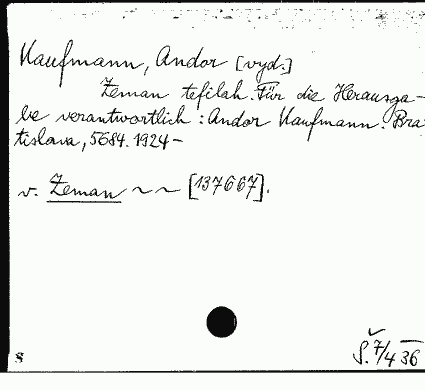 Kaufmann, Andor [vyd.]
Zeman tefilah. Für die Herausga-
be verantwortlich: Andor Kaufmann. Bra-
tislava, 5684. 1924-
v. Zeman ~ ~ [137667].
8
S. 7/4 36